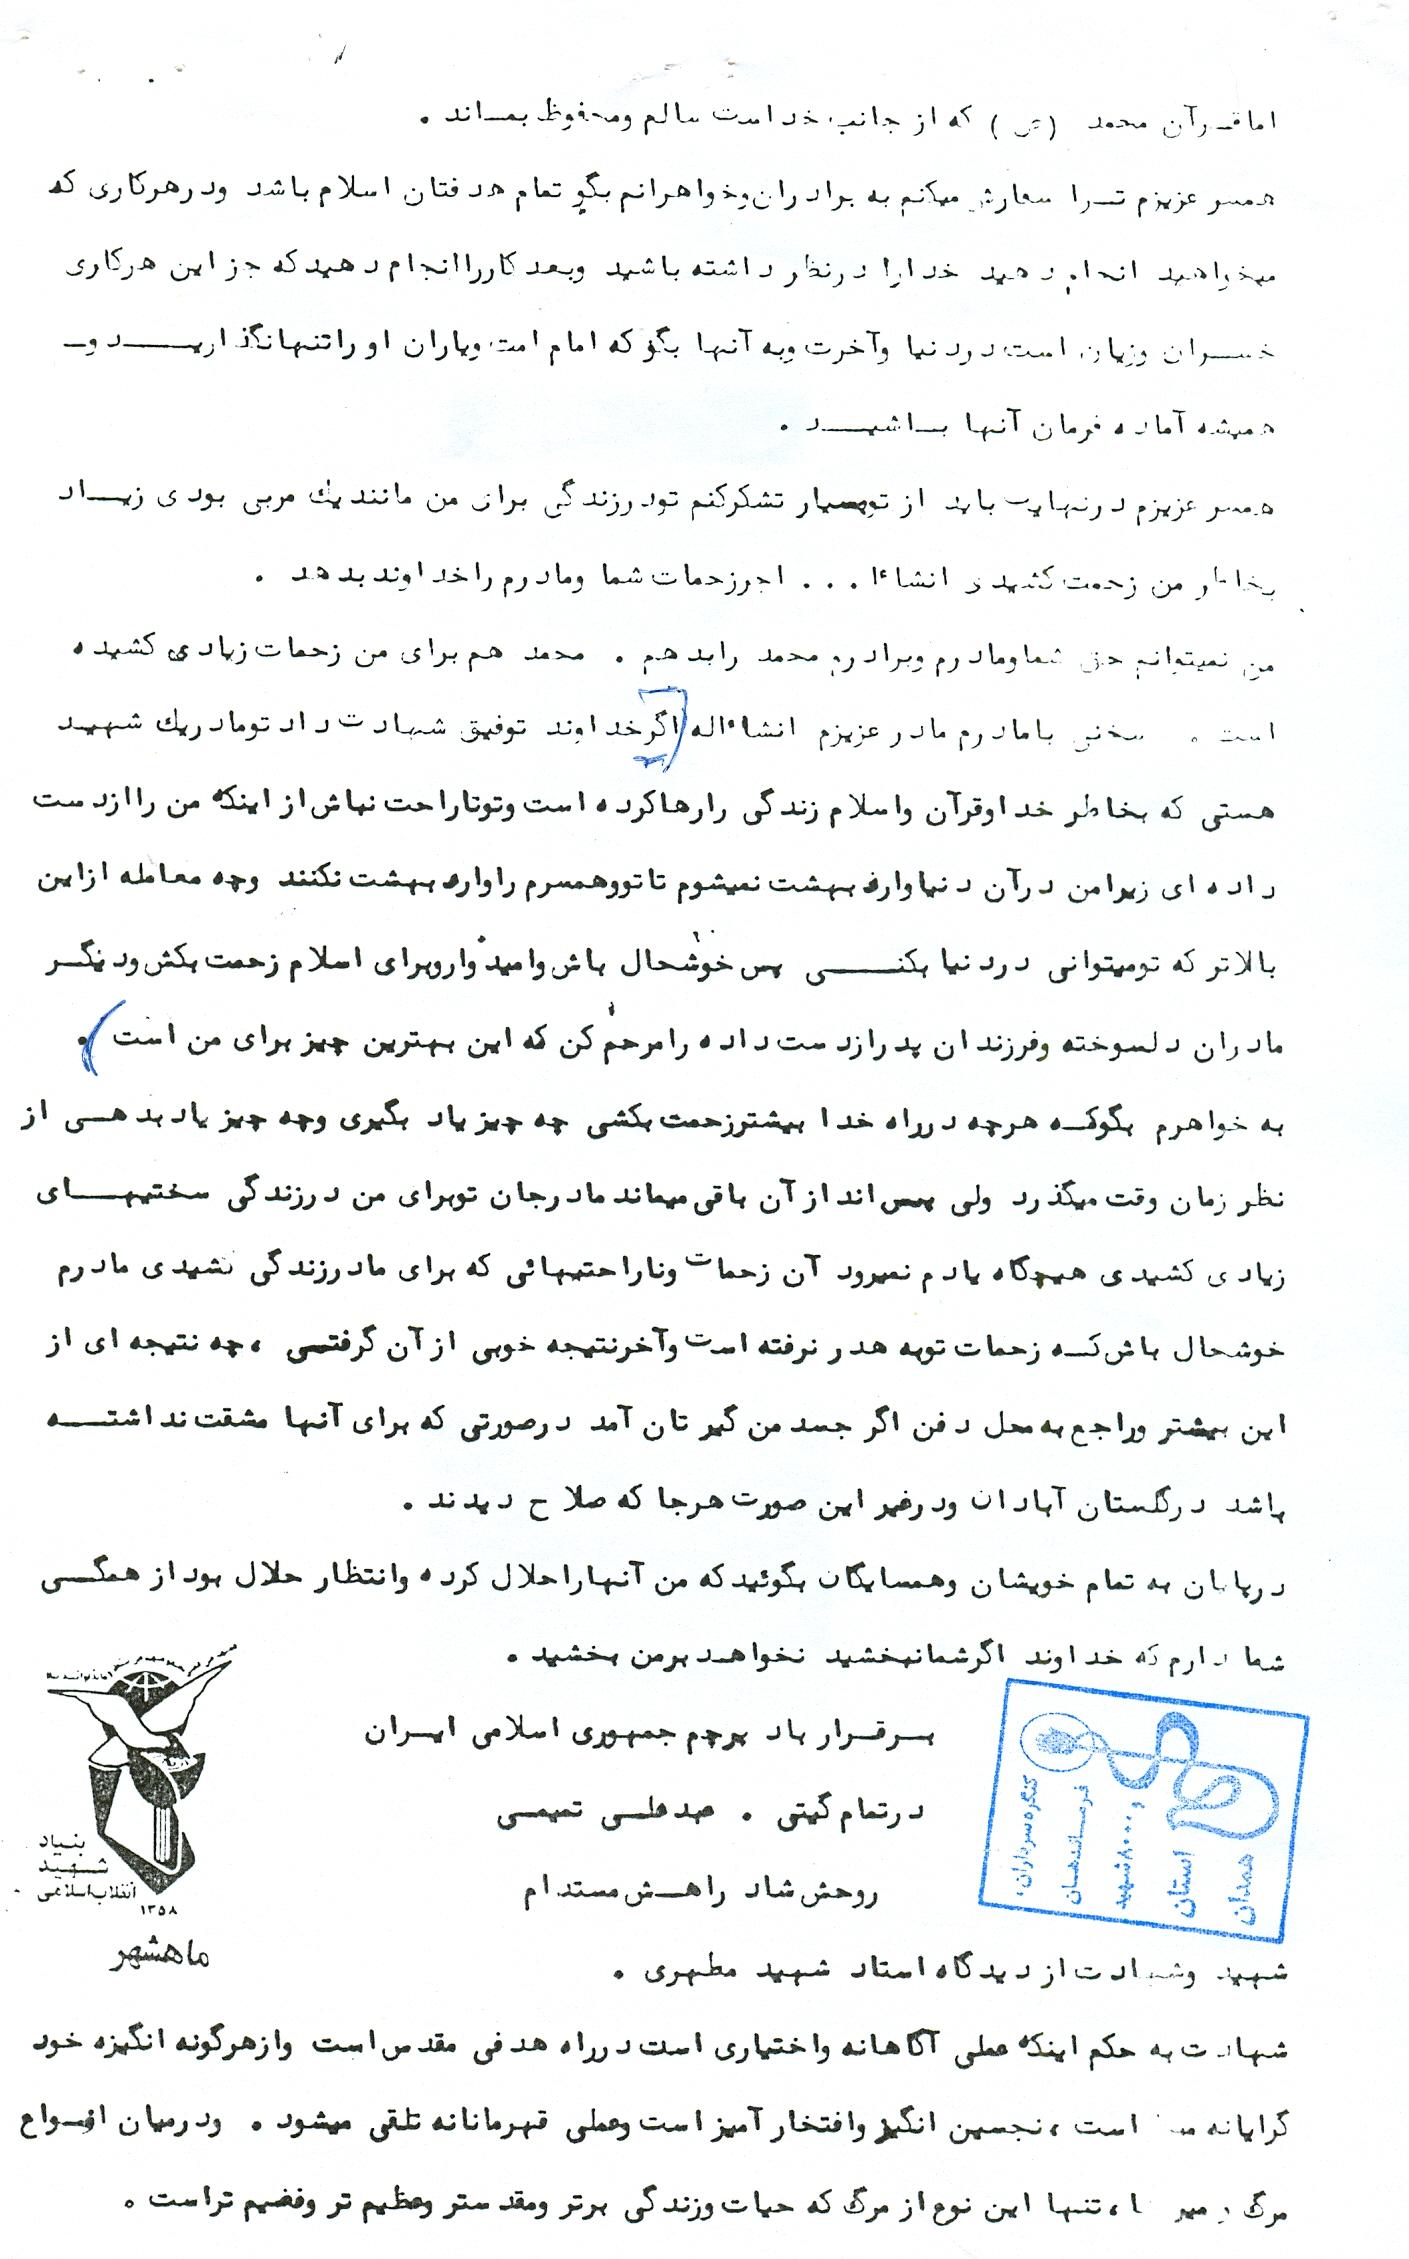 اما قرآن محمد (ص) که از جانب خداست سالم و محفوظ بماند .
همسر عزیزم ترا سفارش میکنم به برادران و خواهرانم بگو تمام هدفتان اسلام باشد و در هر کاری که
میخواهید انجام دهید خدا را در نظر داشته باشید و بعد کار را انجام دهید که جز این هر کاری
خسران و زیان است در دنیا و آخرت و به آنها بگو که امام امت و یاران او را تنها نگذارید و
همیشه آماده فرمان آنها باشید .
همسر عزیزم در نهایت باید از تو بسیار تشکر کنم تو در زندگی برای من مانند یک مربی بودی زیاد
بخاطر من زحمت کشیدی انشاءا ... اجر زحمات شما و مادرم را خداوند بدهد .
من نمیتوانم حق شما و مادرم و برادرم محمد را بدهم . محمد هم برای من زحمات زیادی کشیده
است . سخنی با مادرم مادر عزیزم انشاءاله اگر خداوند توفیق شهادت داد تو مادر یک شهید
هستی که بخاطر خدا و قرآن و اسلام زندگی را رها کرده است و تو ناراحت نباش از اینکه من را از دست
داده ای زیرا من در آن دنیا وارد بهشت نمیشوم تا تو و همسرم را وارد بهشت نکنند و چه معامله از این
بالاتر که تو میتوانی در دنیا بکنی پس خوشحال باش و امیدوار و برای اسلام زحمت بکش و دیگر
مادران دلسوخته و فرزندان پدر از دست داده را مرحم کن که این بهترین چیز برای من است .
به خواهرم بگو که هر چه در راه خدا بیشتر زحمت بکشی چه چیز یاد بگیری و چه چیز یاد بدهی از
نظر زمان وقت میگذرد ولی پس انداز آن باقی میماند مادر جان تو برای من در زندگی سختیهای
زیادی کشیدی هیچگاه یادم نمیرود آن زحمات و ناراحتیهائی که برای ما در زندگی کشیدی مادرم
خوشحال باش که زحمات تو به هدر نرفته است و آخر نتیجه خوبی از آن گرفتی ، چه نتیجه ای از
این بیشتر و راجع به محل دفن اگر جسد من گیر تان آمد در صورتی که برای آنها مشقت نداشته
باشد در گلستان آبادان و در غیر این صورت هر جا که صلاح دیدند .
در پایان به تمام خویشان و همسایگان بگوئید که من آنها را حلال کرده و انتظار حلال بود از همگی
شما دارم که خداوند اگر شما نبخشید نخواهد بر من بخشید .
برقرار باد پرچم جمهوری اسلامی ایران
در تمام گیتی . عبدعلی تمیمی
روحش شاد راهش مستدام
کنگره سرداران،
فرماندهان
و ۸۰۰۰ شهید
استان
همدان
بنیاد
شهید
انقلاب اسلامی
۱۳۵۸
ماهشهر
شهید و شهادت از دیدگاه استاد شهید مطهری .
شهادت به حکم اینکه عملی آگاهانه و اختیاری است در راه هدفی مقدس است و از هر گونه انگیزه خود
گرایانه است ، تحسین انگیز و افتخار آمیز است و عملی قهرمانانه تلقی میشود . و در میان انواع
مرگ و میر ها ، تنها این نوع از مرگ که حیات و زندگی برتر و مقدستر و عظیم تر و فخیم تر است .